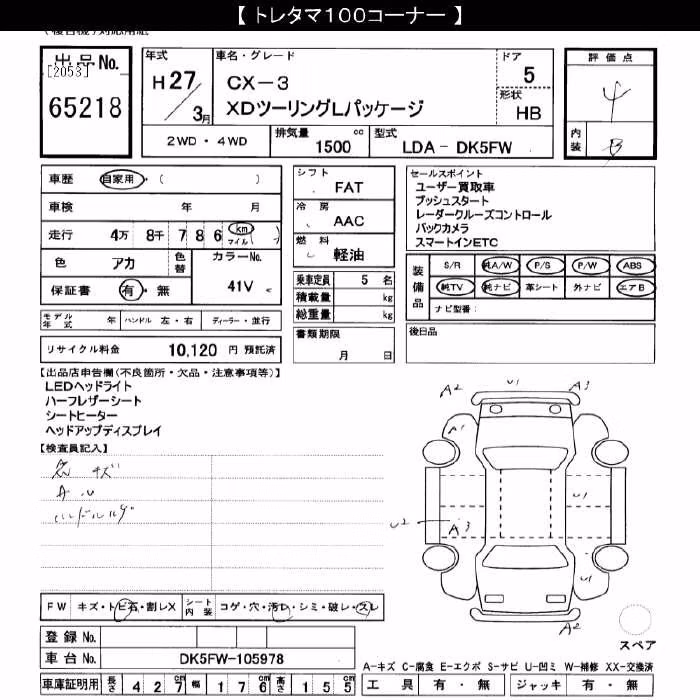 【 トレタマ100コーナー 】
出品No.
[2053]
65218
年式
H 27
3月
車名・グレード
CX-3
XDツーリングLパッケージ
ドア
5
形状
HB
評価点
4
内装
B
2WD・4WD
排気量 cc
1500
型式
LDA- DK5FW
車歴 自家用・( )
車検 年 月
走行 4万 8千 7 8 6 km マイル ( )
色 アカ 色替 カラーNo. 41V
保証書 有・無
モデル年式 年 ハンドル 左・右 ディーラー・並行
リサイクル料金 10,120 円 預託済
シフト
FAT
冷房
AAC
燃料
軽油
乗車定員 5 名
積載量 kg
総重量 kg
書類期限
月 日
セールスポイント
ユーザー買取車
プッシュスタート
レーダークルーズコントロール
バックカメラ
スマートインETC
装備品
S/R 純A/W P/S P/W ABS
純TV 純ナビ 革シート 外ナビ エアB
ナビ型番:
後日品
【出品店申告欄(不良箇所・欠品・注意事項等)】
LEDヘッドライト
ハーフレザーシート
シートヒーター
ヘッドアップディスプレイ
【検査員記入】
キズ
A.U
A2 U1 A3
A1
U1
U2 A3
U1
A2
スペア
FW キズ・トビ石・割レX シート内装 コゲ・穴・汚レ・シミ・破レ・スレ
登録No.
車台No. DK5FW-105978
車庫証明用 長さ 4 2 7 cm 幅 1 7 6 cm 高さ 1 5 5 cm
A-キズ C-腐食 E-エクボ S-サビ U-凹ミ W-補修 XX-交換済
工具 有・無 ジャッキ 有・無